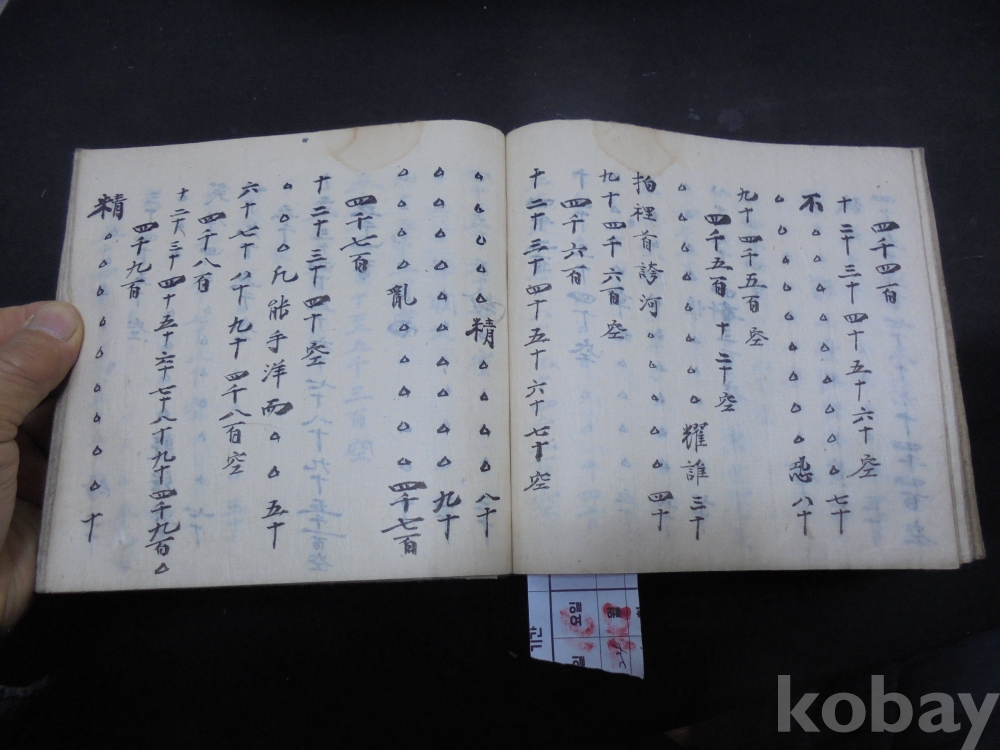 四千四百
十二十三十四十五十六十空
不△△△△△△△七十
△△△△△△△恐八十
九十四千五百空
四千五百十二十空
△△△△△△耀誰三十
拍裡首誇河△△△△四十
九十四千六百空
四千六百
十二十三十四十五十六十七十空
△△△△精△△△八十
△△△△△△△△△九十
△△△亂△△△△△四千七百
四千七百
十二十三十四十空
△△△凡能手洋而△△△五十
六十七十八十九十四千八百空
四千八百
十二十三十四十五十六十七十八十九十四千九百△
四千九百
精△△△△△△△△△十
요일
kobay